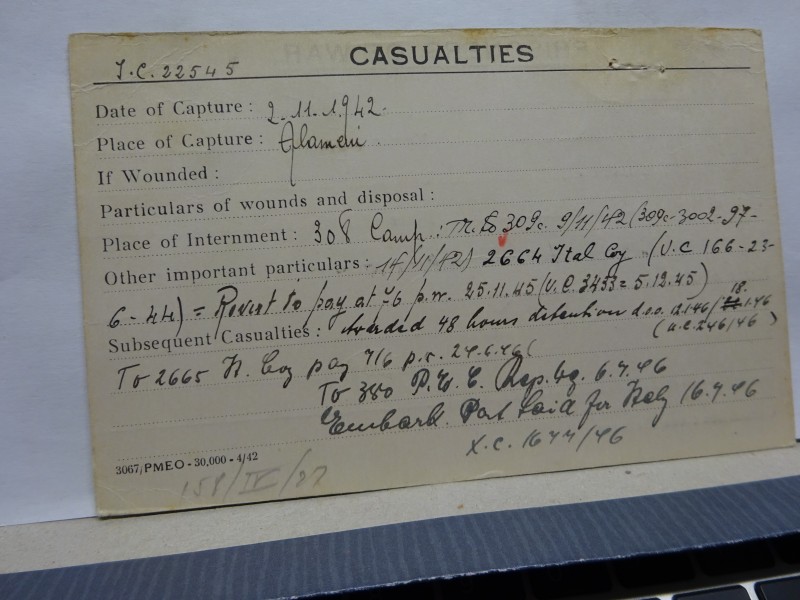 CASUALTIES
J.C. 22545
Date of Capture : 2.11.1942.
Place of Capture : Alamein .
If Wounded :
Particulars of wounds and disposal :
Place of Internment : 308 Camp. : 309c. 9/11/42 (309c-3002-97-
Other important particulars : 14/11/42) 2664 Ital Coy (U.C 166-23-
6-44) = Revert to pay at 7/6 p.w. 25.11.45 (U.C. 3433= 5.12.45)
Subsequent Casualties : Awarded 48 hours detention d.s.o. 12.1.46/ 18.1.46
(U.C. 246/46 )
To 2665 It. Coy pay 7/6 p.w. 24.6.46(
To 380 P.W. C. Rep. 6.7.46
Embark. Port Said for Italy 16.7.46
X.C. 1677/46
3067/PMEO - 30,000 - 4/42
158/IV/27